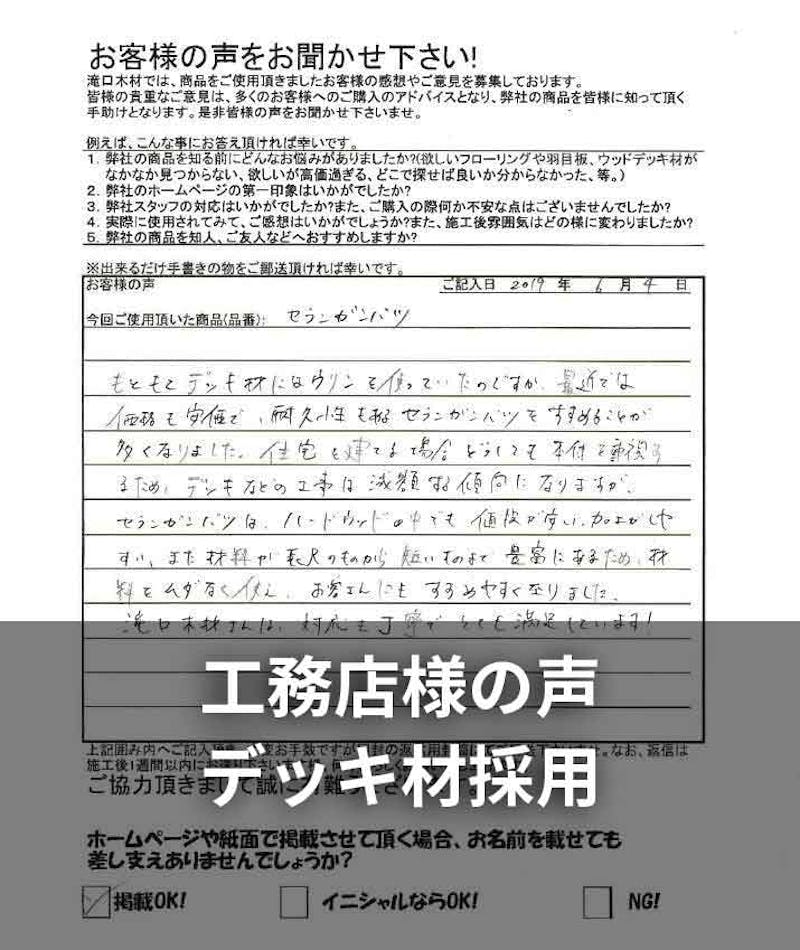 お客様の声をお聞かせ下さい!
滝口木材では、商品をご使用頂きましたお客様の感想やご意見を募集しております。
皆様の貴重なご意見は、多くのお客様へのご購入のアドバイスとなり、弊社の商品を皆様に知って頂く
手助けとなります。是非皆様の声をお聞かせ下さいませ。
例えば、こんな事にお答え頂ければ幸いです。
1. 弊社の商品を知る前にどんなお悩みがありましたか?(欲しいフローリングや羽目板、ウッドデッキ材が
なかなか見つからない、欲しいが高価過ぎる、どこで探せば良いか分からなかった、等。)
2. 弊社のホームページの第一印象はいかがでしたか?
3. 弊社スタッフの対応はいかがでしたか?また、ご購入の際何か不安な点はございませんでしたか?
4. 実際に使用されてみて、ご感想はいかがでしょうか?また、施工後雰囲気はどの様に変わりましたか?
5. 弊社の商品を知人、ご友人などへおすすめしますか?
※出来るだけ手書きの物をご郵送頂ければ幸いです。
お客様の声 ご記入日 2019 年 6 月 4 日
今回ご使用頂いた商品(品番): セランガンバツ
もともとデッキ材にはウリンを使っていたのですが、最近では
価格も安価で、耐久性も有るセランガンバツをすすめることが
多くなりました。住宅を建てる場合どうしても本体を重視す
るため、デッキなどの工事は減額する傾向になりますが、
セランガンバツは、ハードウッドの中でも値段が安い、加工がしや
すい、また材料が長尺のものから短いものまで豊富にあるため、材
料をムダなく使え、お客さんにもすすめやすくなりました。
滝口木材さんは、対応も丁寧でとても満足しています!
工務店様の声
デッキ材採用
上記囲み内へご記入
施工後1週間以内に
ご協力頂きまして誠に有難
ホームページや紙面で掲載させて頂く場合、お名前を載せても
差し支えありませんでしょうか?
掲載OK! イニシャルならOK! NG!